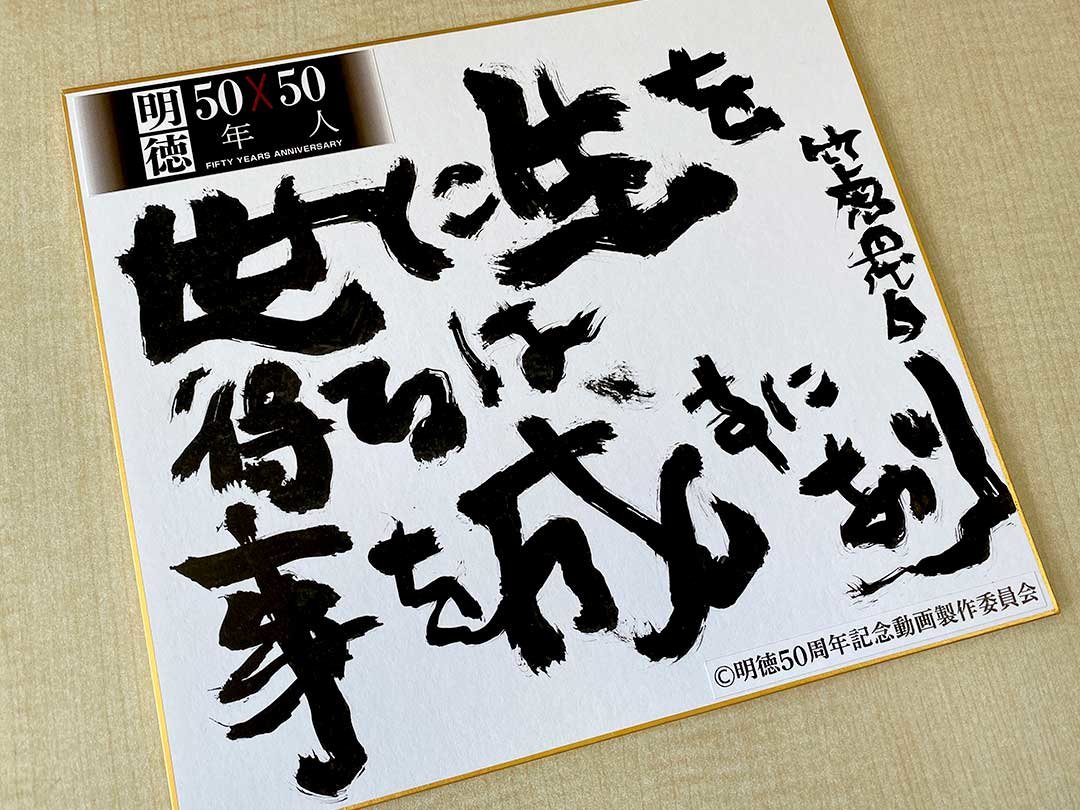 明徳
50X50
年 人
FIFTY YEARS ANNIVERSARY
世に生を
得るは
事を成すにあり
©明徳50周年記念動画製作委員会